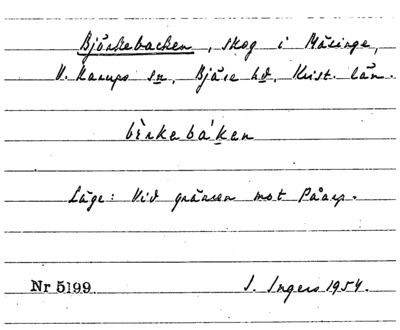 Björkebacken, skog i Mäsinge,
V. Karups sn, Bjäre hd, Krist. län.
bèrkebáken
Läge: Vid gränsen mot Påarp.
Nr 5199 I. Ingers 1954.